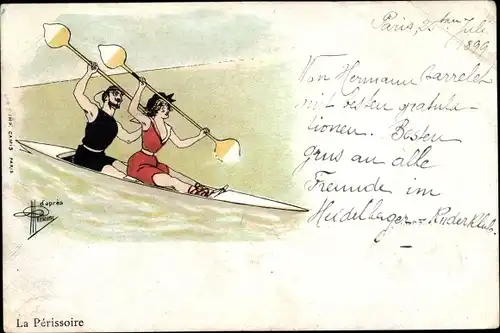 Paris, 25ten Juli
1899
Von Hermann Barrelet
mit besten gratula-
tionen. Besten
grus an alle
Freunde im
Heidelberger Ruderklub.
IMP. CAMIS PARIS
d'après
La Périssoire